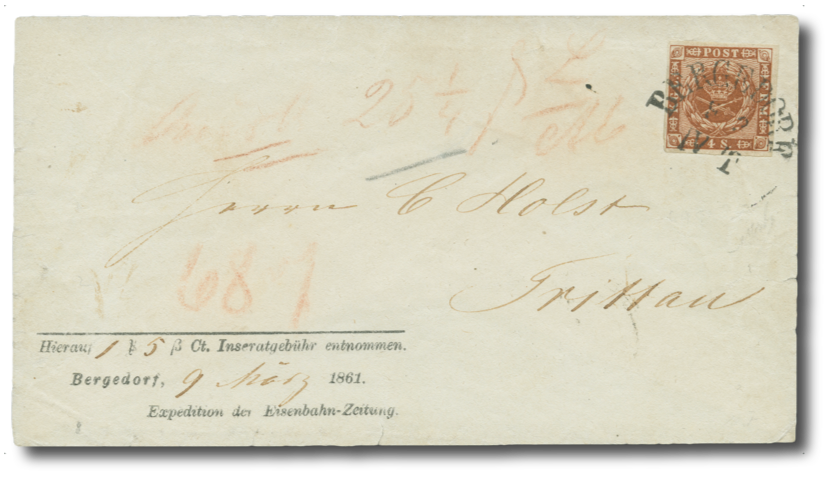 25 1/4
POST
4 S.
BERGEDORF
Herrn C Holst
Trittau
68
Hierauf 1 ₰ 5 β Ct. Inseratgebühr entnommen.
Bergedorf, 9 März 1861.
Expedition der Eisenbahn-Zeitung.